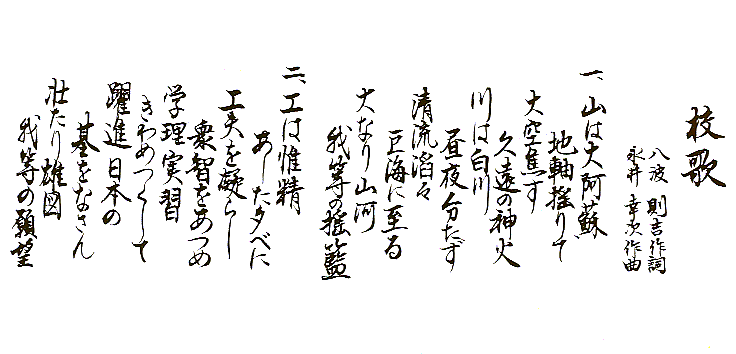 校歌
八波 則吉 作詞
永井 幸次 作曲
一、山は大阿蘇
地軸揺りて
大空焦す
久遠の神火
川は白川
昼夜分たず
清流滔々
巨海に至る
大なり山河
我等の揺籃
二、工は惟精
あした夕べに
工夫を凝らし
衆智をあつめ
学理実習
きわめつくして
躍進日本の
基をなさん
壮たり雄図
我等の願望